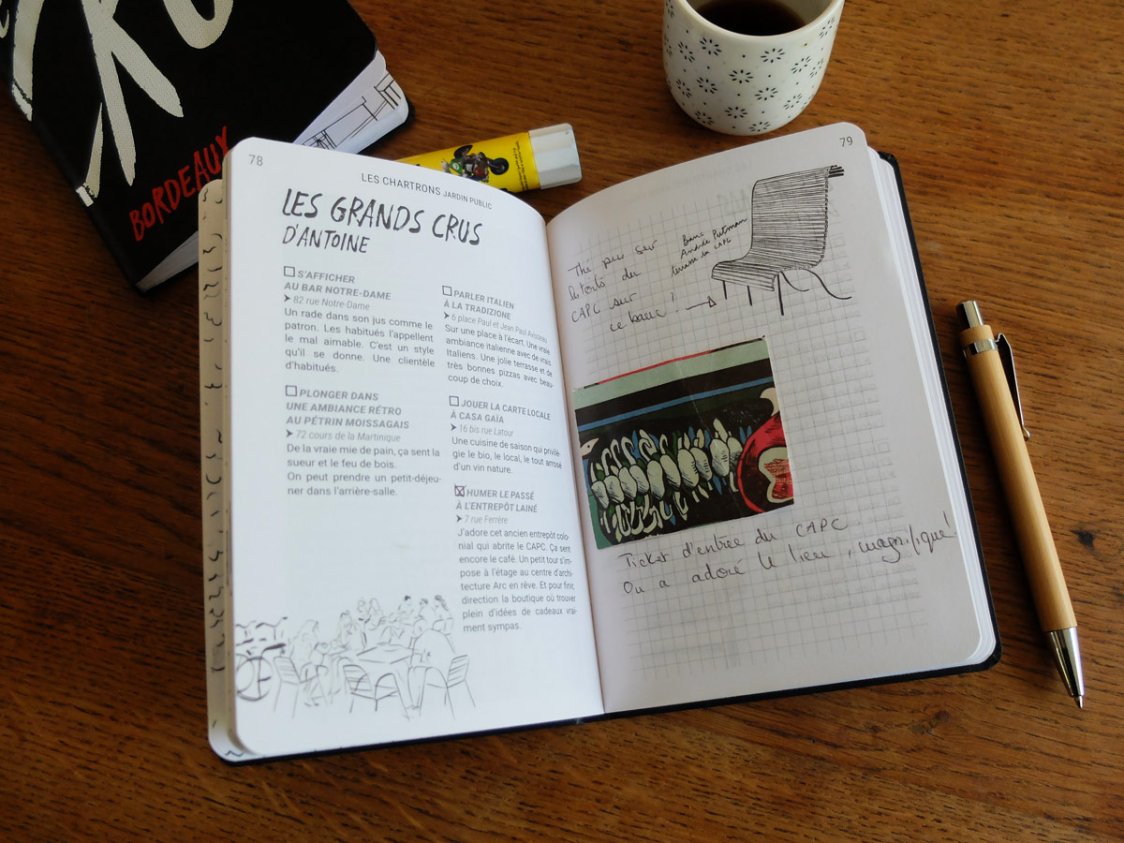 BORDEAUX
78
LES CHARTRONS JARDIN PUBLIC
LES GRANDS CRUS
D'ANTOINE
S'AFFICHER
AU BAR NOTRE-DAME
➤ 82 rue Notre-Dame
Un rade dans son jus comme le
patron. Les habitués l'appellent
le mal aimable. C'est un style
qu'il se donne. Une clientèle
d'habitués.
PLONGER DANS
UNE AMBIANCE RÉTRO
AU PÉTRIN MOISSAGAIS
➤ 72 cours de la Martinique
De la vraie mie de pain, ça sent la
sueur et le feu de bois.
On peut prendre un petit-déjeu-
ner dans l'arrière-salle.
PARLER ITALIEN
À LA TRADIZIONE
➤ 6 place Paul et Jean Paul Avisseau
Sur une place à l'écart. Une vraie
ambiance italienne avec de vrais
Italiens. Une jolie terrasse et de
très bonnes pizzas avec beau-
coup de choix.
JOUER LA CARTE LOCALE
À CASA GAÏA
➤ 16 bis rue Latour
Une cuisine de saison qui privilé-
gie le bio, le local, le tout arrosé
d'un vin nature.
HUMER LE PASSÉ
À L'ENTREPÔT LAINÉ
➤ 7 rue Ferrère
J'adore cet ancien entrepôt colo-
nial qui abrite le CAPC. Ça sent
encore le café. Un petit tour s'im-
pose à l'étage au centre d'archi-
tecture Arc en rêve. Et pour finir,
direction la boutique où trouver
plein d'idées de cadeaux vrai-
ment sympas.
79
Banc
Andrée Putman
terrasse du CAPC
Thé pris sur
CAPC sur
ce banc !
Ticket d'entrée du CAPC.
On a adoré le lieu, magnifique !